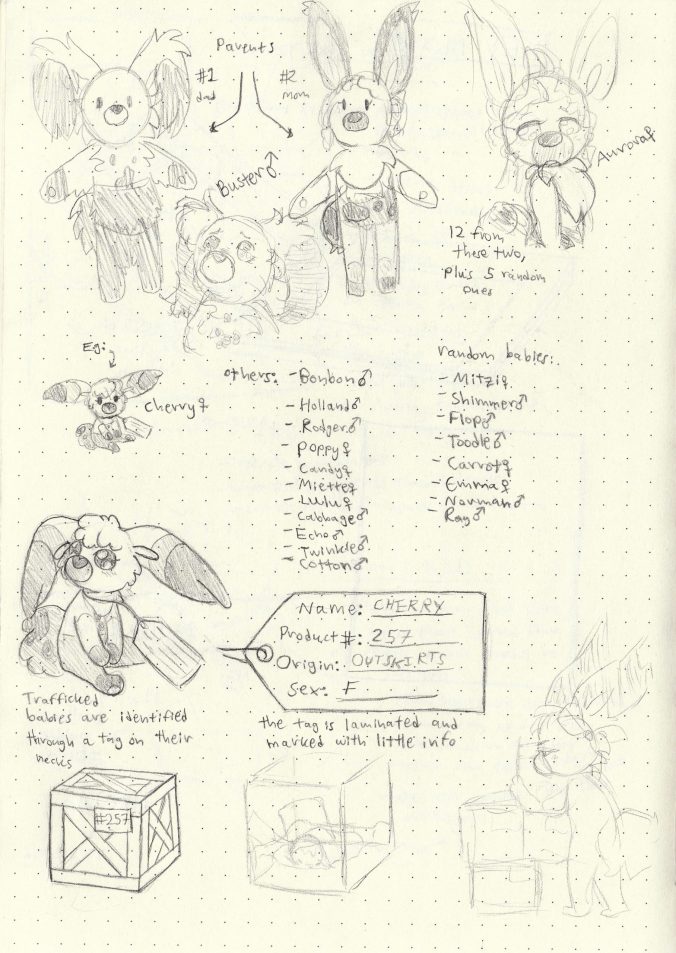 Parents
#1
dad
#2
mom
Buster♂
Aurora♀
12 from
these two,
plus 5 random
ones
Eg:
Cherry♀
others:
- Bonbon♂
- Holland♂
- Rodger♂
- Poppy♀
- Candy♀
- Miette♀
- Lulu♀
- Cabbage♂
- Echo♂
- Twinkle♂
- Cotton♂
random babies:
- Mitzi♀
- Shimmer♂
- Flop♂
- Toodle♂
- Carrot♀
- Emma♀
- Norman♂
- Ray♂
Name: CHERRY
Product #: 257
Origin: OUTSKIRTS
Sex: F
Trafficked
babies are identified
through a tag on their
necks
the tag is laminated and
marked with little info
#257